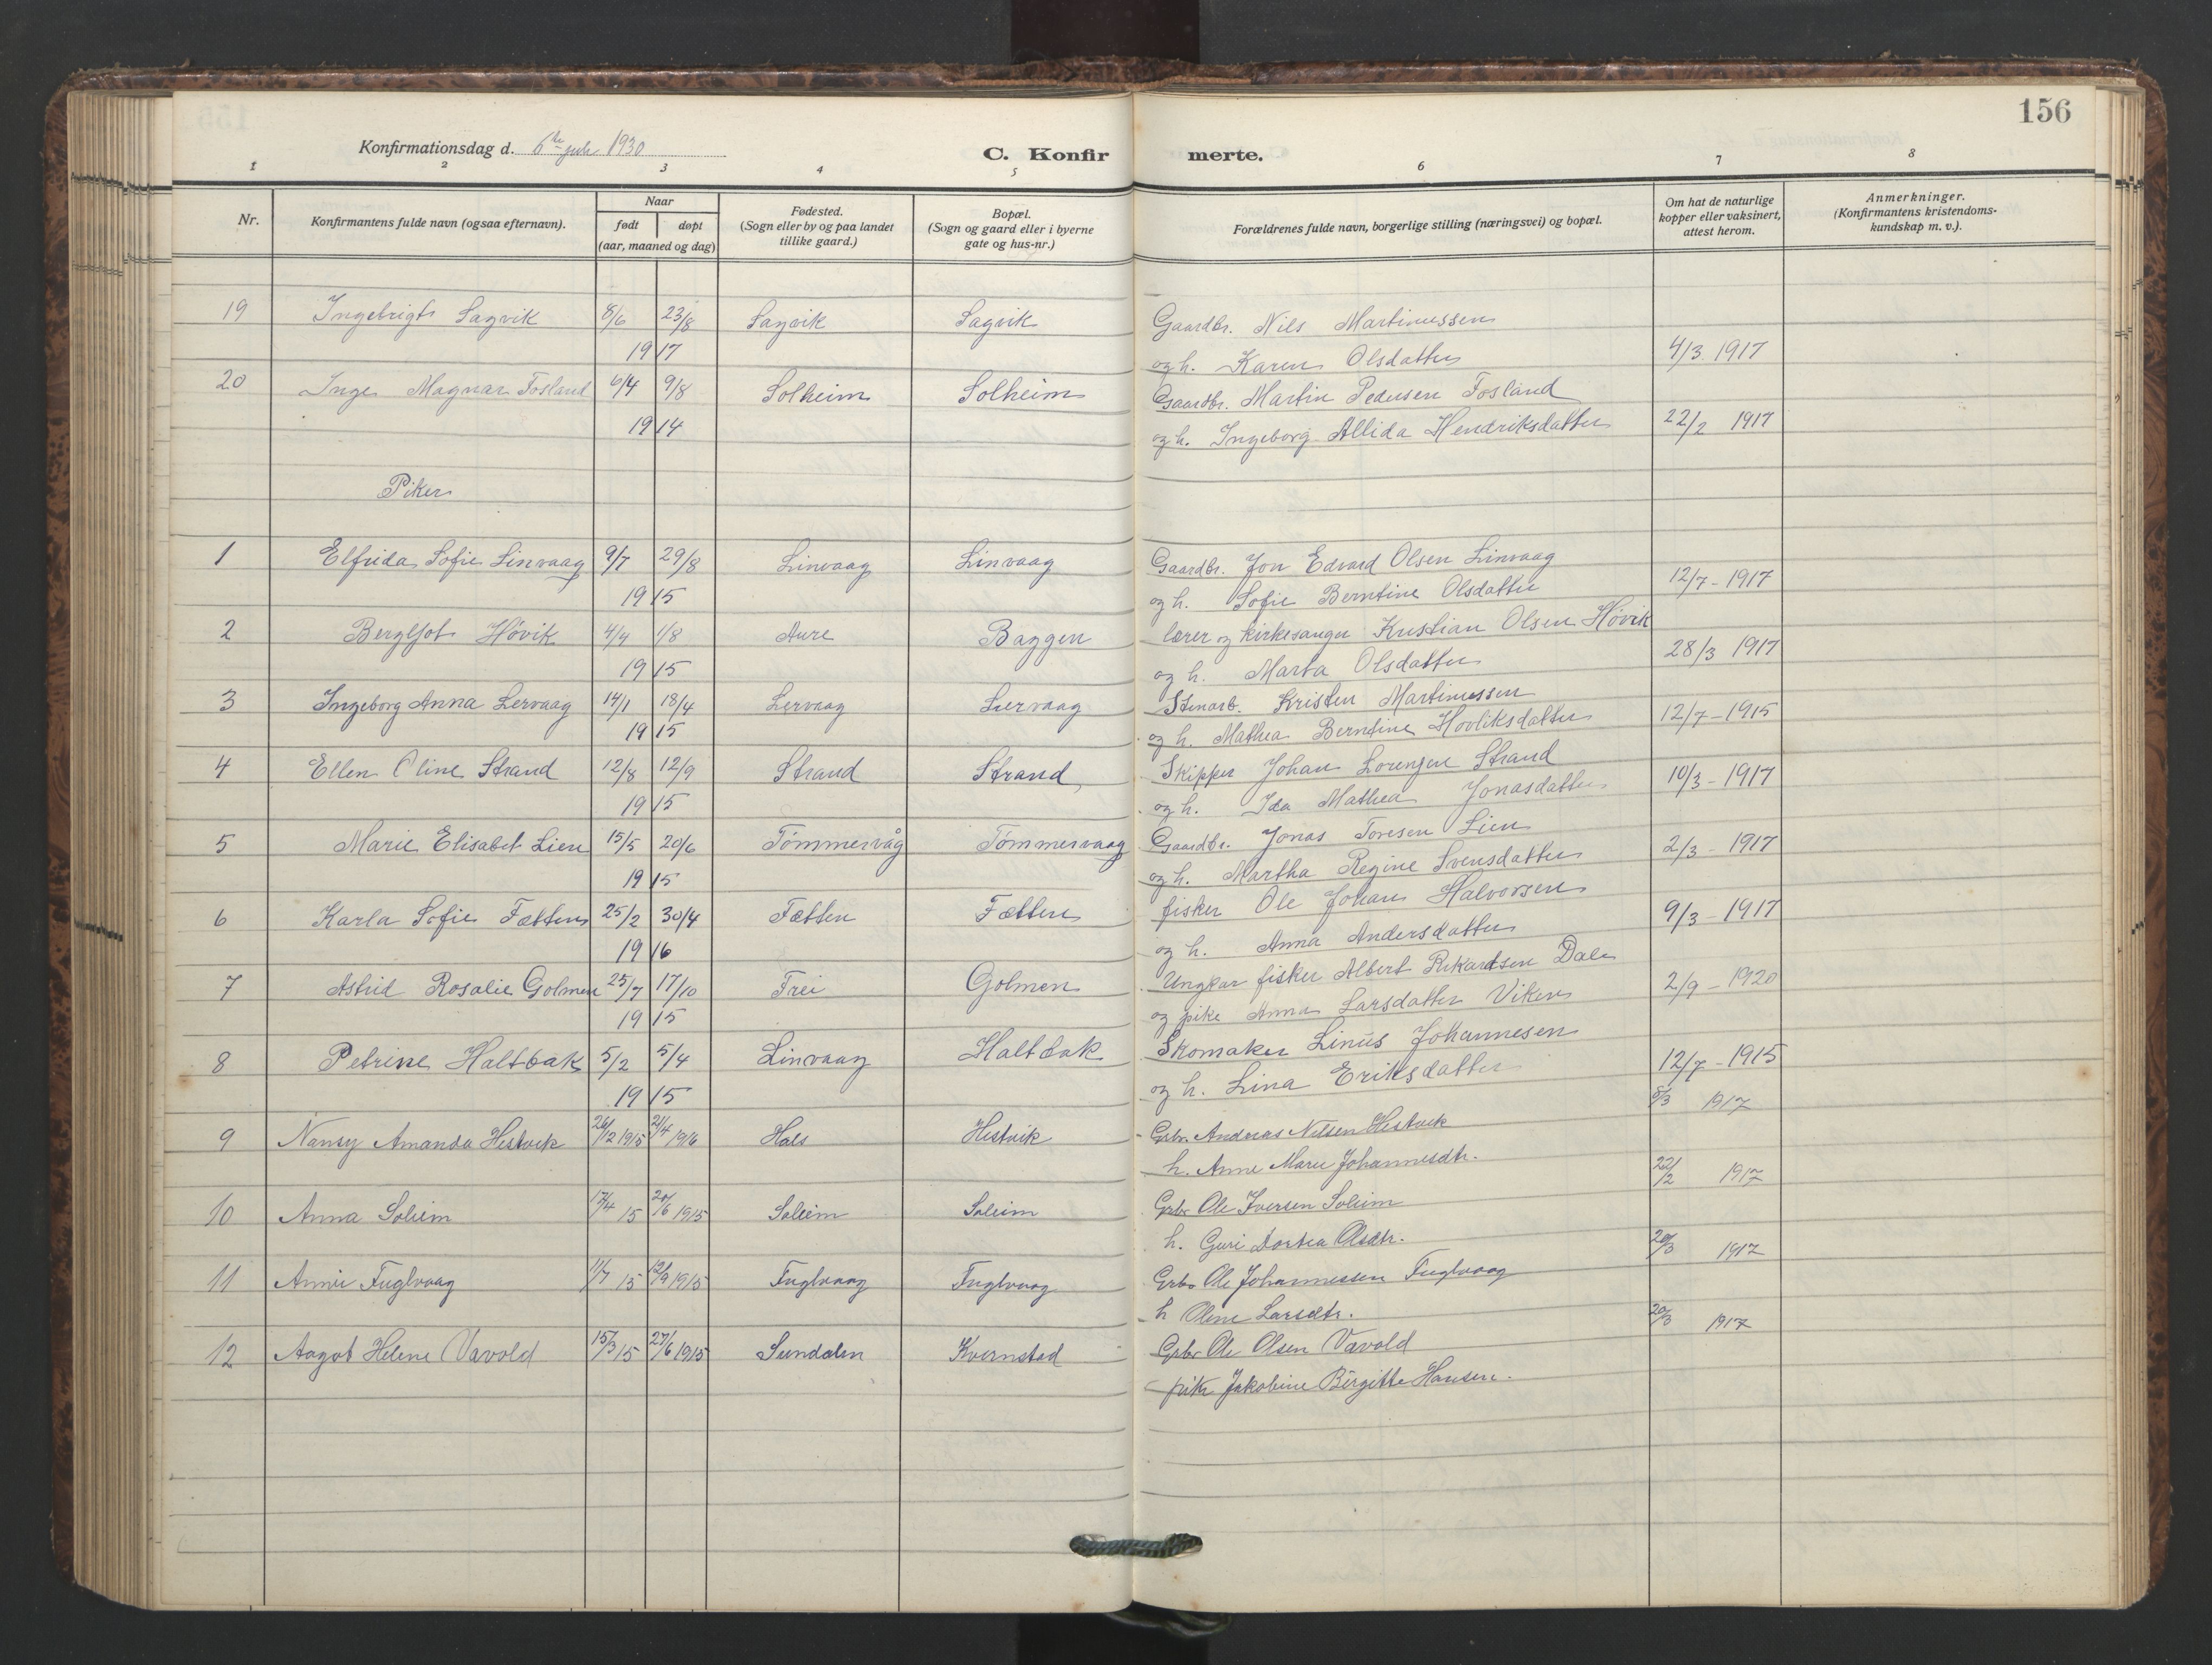 156
Konfirmationsdag d. 6te juli 1930
C. Konfirmerte.
1 2 3 4 5 6 7 8
Nr. Konfirmantens fulde navn (ogsaa efternavn). Naar født døpt (aar, maaned og dag) Fødested. (Sogn eller by og paa landet tillike gaard.) Bopæl. (Sogn og gaard eller i byerne gate og hus-nr.) Forældrenes fulde navn, borgerlige stilling (næringsvei) og bopæl. Om hat de naturlige kopper eller vaksinert, attest herom. Anmerkninger. (Konfirmantens kristendoms-kundskap m. v.).
19 Ingebrigt Sagvik 8/6 23/8 Sagvik Sagvik Gaardbr. Nils Martinussen
1917 og h. Karen Olsdatter 4/3 1917
20 Inge Magnar Fosland 6/4 9/8 Solheim Solheim Gaardbr. Martin Pedersen Fosland
1914 og h. Ingeborg Allida Hendriksdatter 22/2 1917
Piker
1 Elfrida Sofie Linvaag 9/7 29/8 Linvaag Linvaag Gaardbr. Jon Edvard Olsen Linvaag
1915 og h. Sofie Berntine Olsdatter 12/7 - 1917
2 Bergljot Høvik 4/4 1/8 Aure Baggen lærer og kirkesanger Kristian Olsen Høvik
1915 og h. Marta Olsdatter 28/3 1917
3 Ingeborg Anna Lervaag 14/1 18/4 Lervaag Lervaag Stenarb. Kristen Martinussen
1915 og h. Mathea Berntine Hovliksdatter 12/7 - 1915
4 Ellen Oline Strand 12/8 12/9 Strand Strand Skipper Johan Lorensen Strand
1915 og h. Ida Mathea Jonasdatter 10/3 - 1917
5 Marie Elisabet Lien 15/5 20/6 Tømmervåg Tømmervaag Gaardbr. Jonas Toresen Lien
1915 og h. Martha Regine Svensdatter 2/3 - 1917
6 Karla Sofie Fætten 25/2 30/4 Fætten Fætten fisker Ole Johan Halvorsen
1916 og h. Anna Andersdatter 9/3 - 1917
7 Astrid Rosalie Golmen 25/7 17/10 Frei Golmen Ungkar fisker Albert Rikardsen Dale
1915 og pike Anna Larsdatter Viken 2/9 - 1920
8 Petrine Haltbak 5/2 5/4 Linvaag Haltbak Skomaker Linus Johannesen
1915 og h. Lina Eriksdatter 12/7 - 1915
9 Nansy Amanda Hestvik 26/12 1915 24/4 1916 Hals Hestvik Grbr. Andreas Nilsen Hestvik 5/3 1917
h. Anne Marie Johannesdtr.
10 Anna Soleim 17/4 15 20/6 1915 Soleim Soleim Grbr Ole Iversen Soleim 22/2 1917
h. Guri Dortea Olsdtr.
11 Annie Fuglvaag 11/7 15 12/9 1915 Fuglvaag Fuglvaag Grbr Ole Johannessen Fuglvaag 20/3 1917
h Oline Larsdtr.
12 Aagot Helene Vavold 15/3 15 27/6 1915 Sundalen Kvernstad Grbr Ole Olsen Vavold 20/3 1917
pike Jakobine Birgitte Hansen.